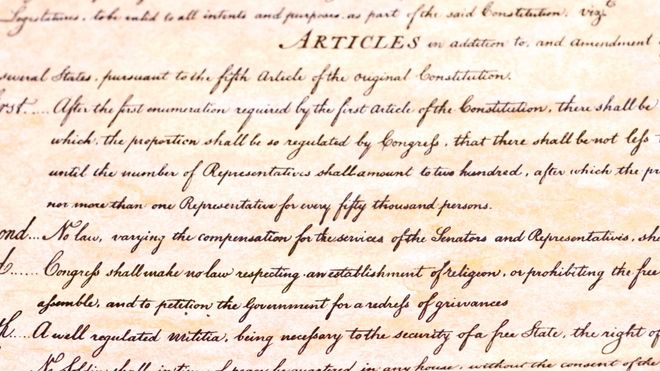 Legislatures, to be valid to all intents and purposes, as part of the said Constitution, viz.t
ARTICLES in addition to, and amendment
several States, pursuant to the fifth Article of the original Constitution.
rst..... After the first enumeration required by the first Article of the Constitution, there shall be
which, the proportion shall be so regulated by Congress, that there shall be not less
until the number of Representatives shall amount to two hundred, after which the pr
nor more than one Representative for every fifty thousand persons.
ond... No law, varying the compensation for the services of the Senators and Representatives, sha
d...... Congress shall make no law respecting an establishment of religion, or prohibiting the free
assemble, and to petition the Government for a redress of grievances
h.... A well regulated Militia, being necessary to the security of a free State, the right of
No Soldier shall in time of peace be quartered in any house, without the consent of the